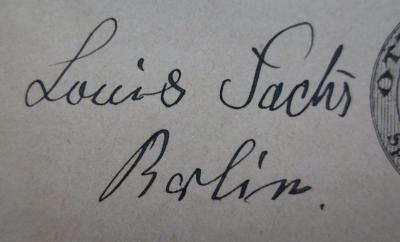 Louis Sachs
Berlin.